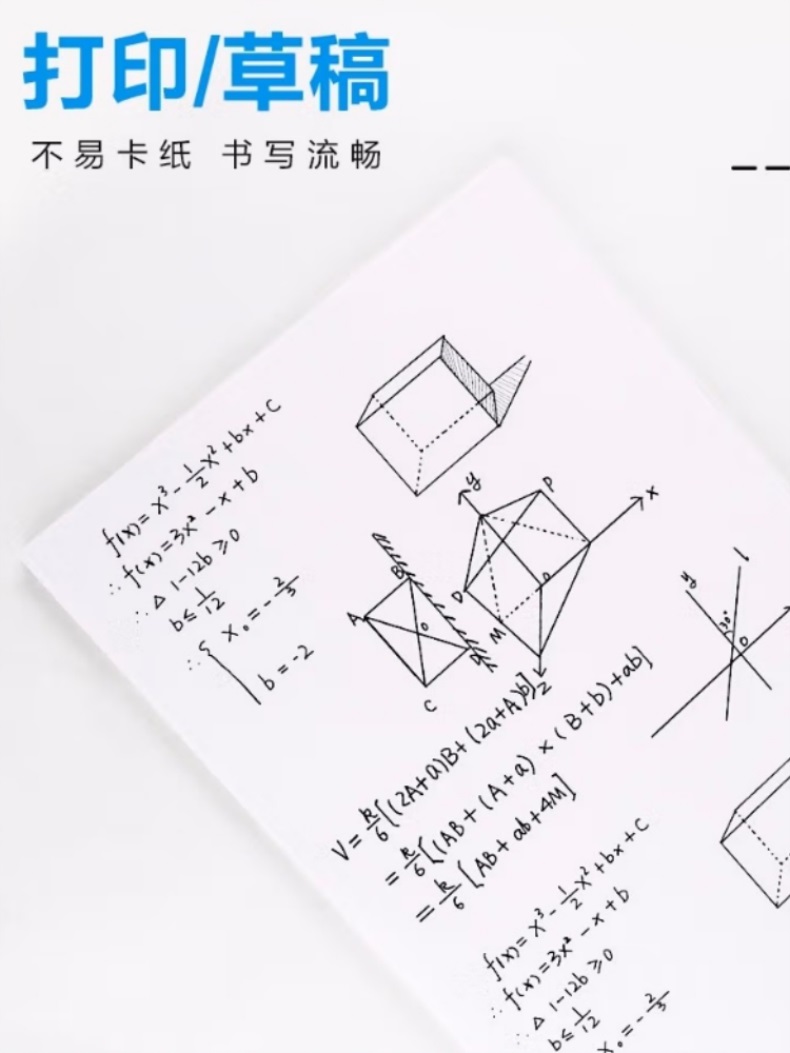 打印/草稿
不易卡纸 书写流畅
f(x)=x³-½x²+bx+C
∴f(x)=3x²-x+b
∴△ 1-12b≥0
b≤1/12
∴{ x₀=-2/3
b=-2
y
P
x
D
M
Z
B
A
o
C
l
y
30°
o
=k/6[(AB+(A+a)×(B+b)+ab]
=k/6[AB+ab+4M]
f(x)=x³-½x²+bx+C
∴f(x)=3x²-x+b
∴△ 1-12b≥0
b≤1/12
x₀=-2/3